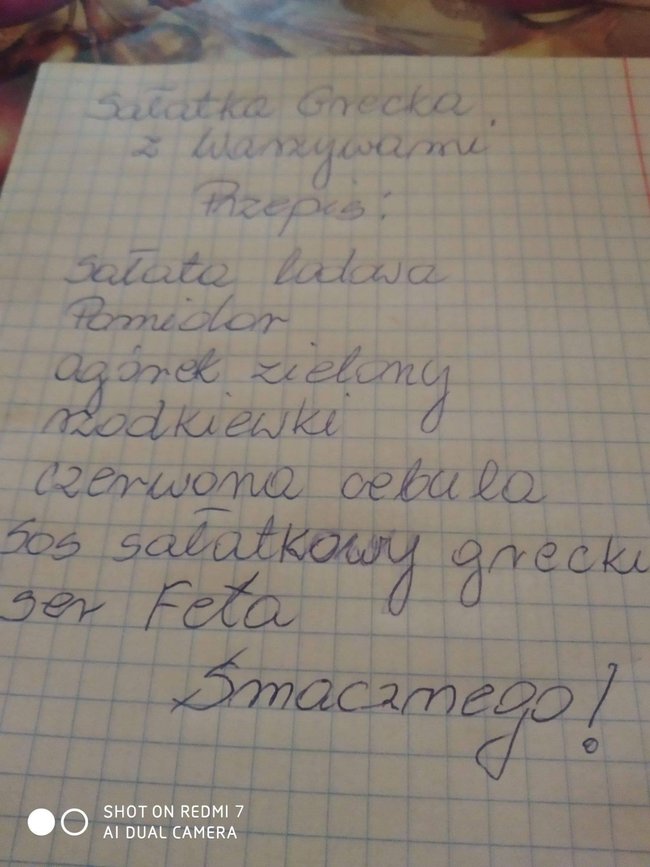 Sałatka Grecka
z Warzywami.
Przepis:
Sałata lodowa
Pomidor
ogórek zielony
rzodkiewki
czerwona cebula
Sos sałatkowy grecki
ser Feta
Smacznego!
SHOT ON REDMI 7
AI DUAL CAMERA